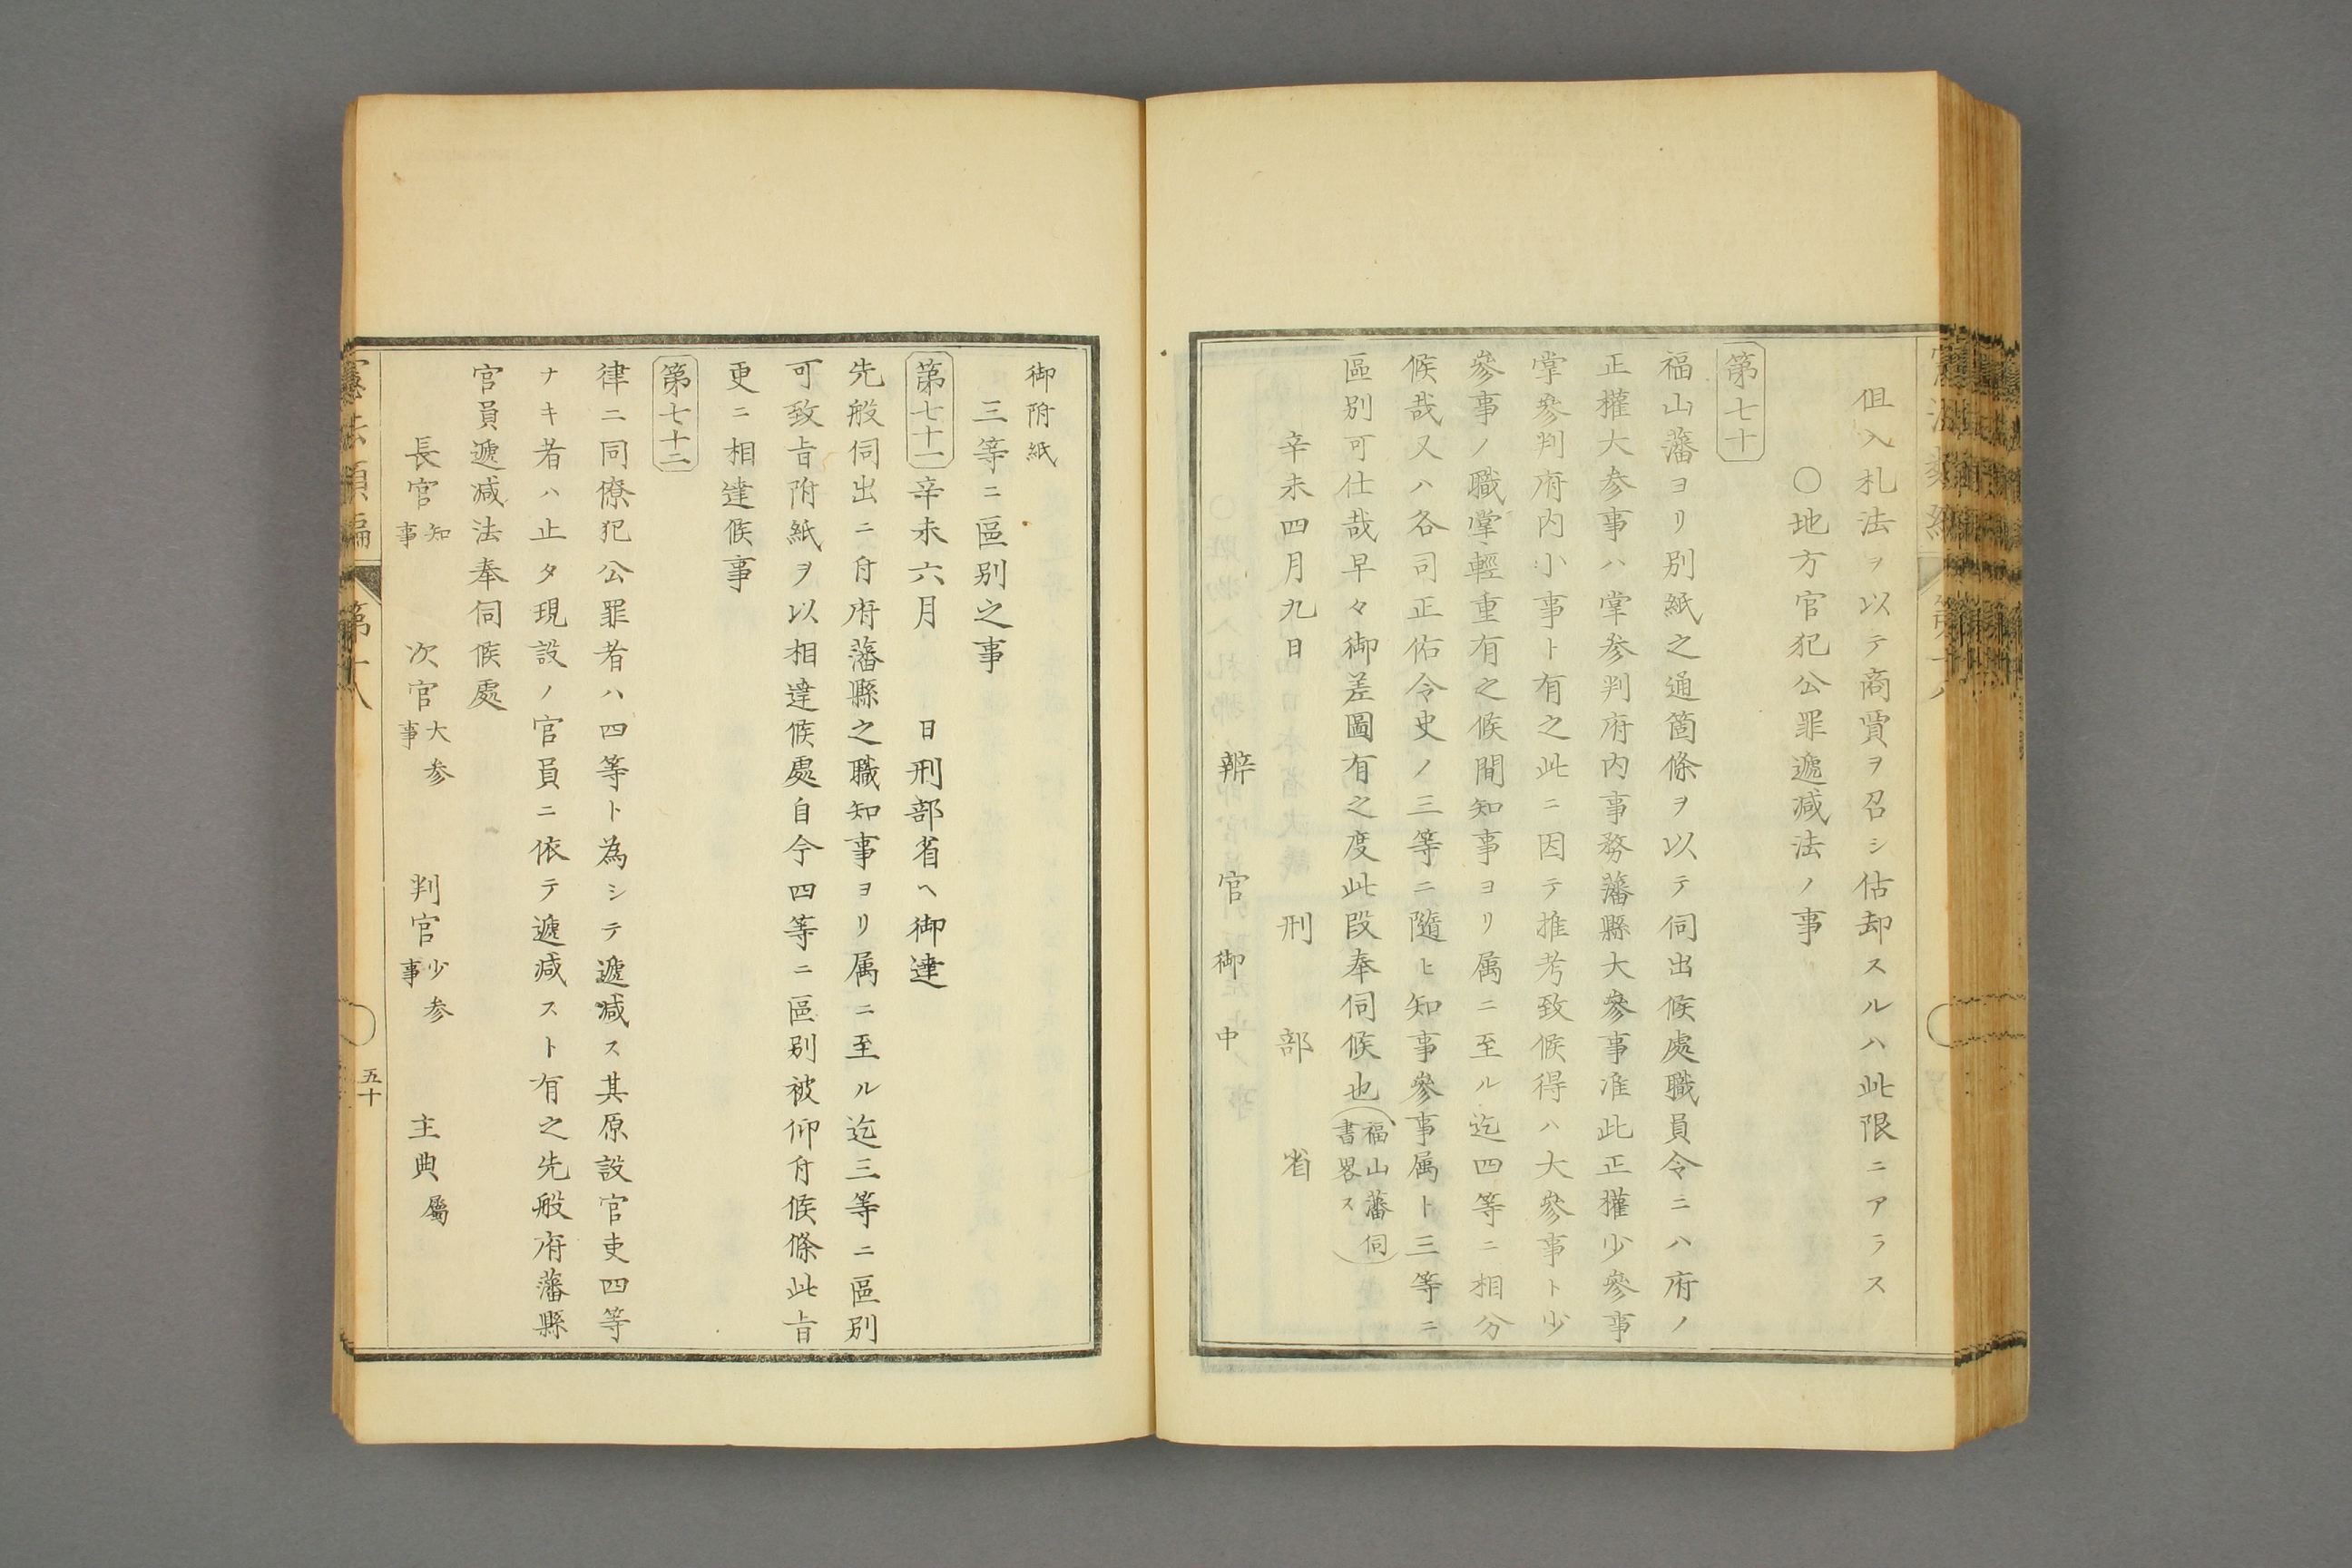 伹入札法ヲ以テ商賈ヲ召シ估却スルハ此限ニアラス
〇地方官犯公罪遞減法ノ事
第七十
福山藩ヨリ別紙之通箇條ヲ以テ伺出候處職員令ニハ府ノ
正權大参事ハ掌参判府内事務藩縣大參事准此正權少參事
掌參判府内小事ト有之此ニ因テ推考致候得ハ大參事ト少
參事ノ職掌輕重有之候間知事ヨリ属ニ至ル迄四等ニ相分
候哉又ハ各司正佑令史ノ三等ニ隨ヒ知事參事属ト三等ニ
區別可仕哉早々御差圖有之度此段奉伺候也(福山藩伺書畧ス)
辛未四月九日　刑部省
辨官御中
御附紙
三等ニ區別之事
第七十一 辛未六月　日刑部省ヘ御達
先般伺出ニ付府藩縣之職知事ヨリ属ニ至ル迄三等ニ區別
可致㫖附紙ヲ以相達候處自今四等ニ區別被仰付候條此㫖
更ニ相達候事
第七十二
律ニ同僚犯公罪者ハ四等ト為シテ遞減ス其原設官吏四等
ナキ者ハ止タ現設ノ官員ニ依テ遞減スト有之先般府藩縣
官員遞減法奉伺候處
長官知事　次官大参事　判官少参事　主典屬
憲法類編　第十八　五十